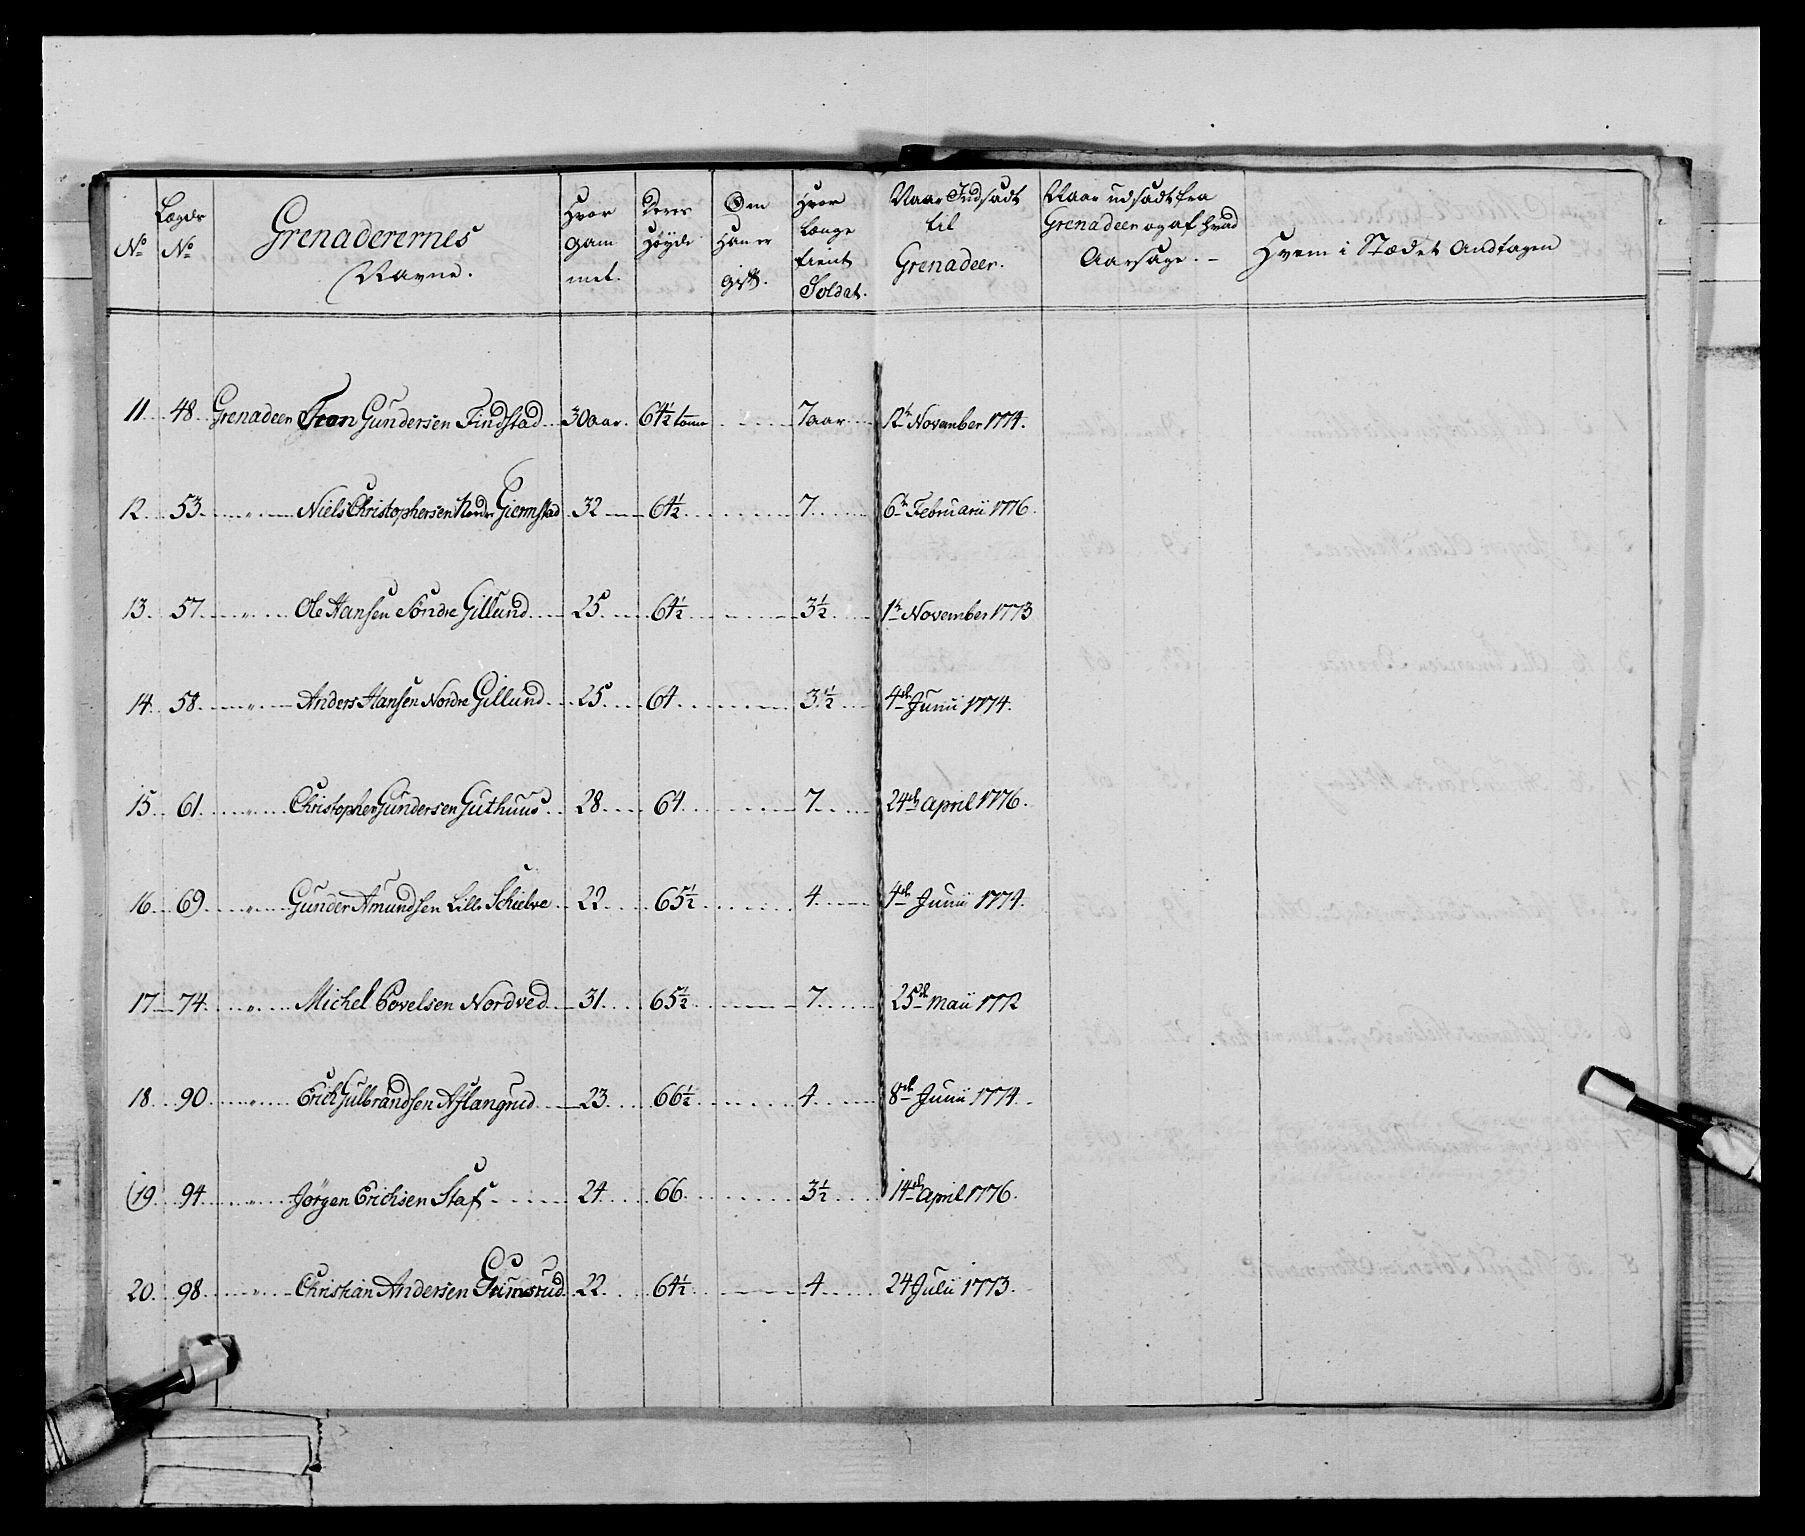 No
Lægds No
Grenaderernes Navne.
Hvor gam mel.
Deres Høyde
Om Han er gift.
Hvor Længe tient Soldat.
Naar Indsadt til Grenadeer.
Naar udsadt fra Grenadeer og af hvad Aarsage. –
Hvem i Stædet Andtagen
11 48 Grenadeer Gundersen Findstad 30 aar. 64½ tomme 7 aar 12te November 1774.
12 53 " Niels Christophersen Nordr Giernstad 32 64½ 7 6te Februarii 1776.
13 57 " Ole Hansen Søndre Gillund 25 64½ 3½ 1te November 1773
14 58 " Anders Hansen Nordre Gillund 25 64 3½ 4de Junii 1774.
15 61 " Christopher Gundersen Guthuus 28 64 7 24de April 1776.
16 69 " Gunder Amundsen Lille Schielve 22 65½ 4 4de Junii 1774.
17 74 " Michel Povelsen Nordved 31 65½ 7 25de Maii 1772
18 90 " Erich Gulbrandsen Aslangrud 23 66½ 4 8de Junii 1774.
19 94 " Jørgen Erichsen Staf 24 66 3½ 14de April 1776.
20 98 " Christian Andersen Grimsrud 22 64½ 4 24 Julii 1773.